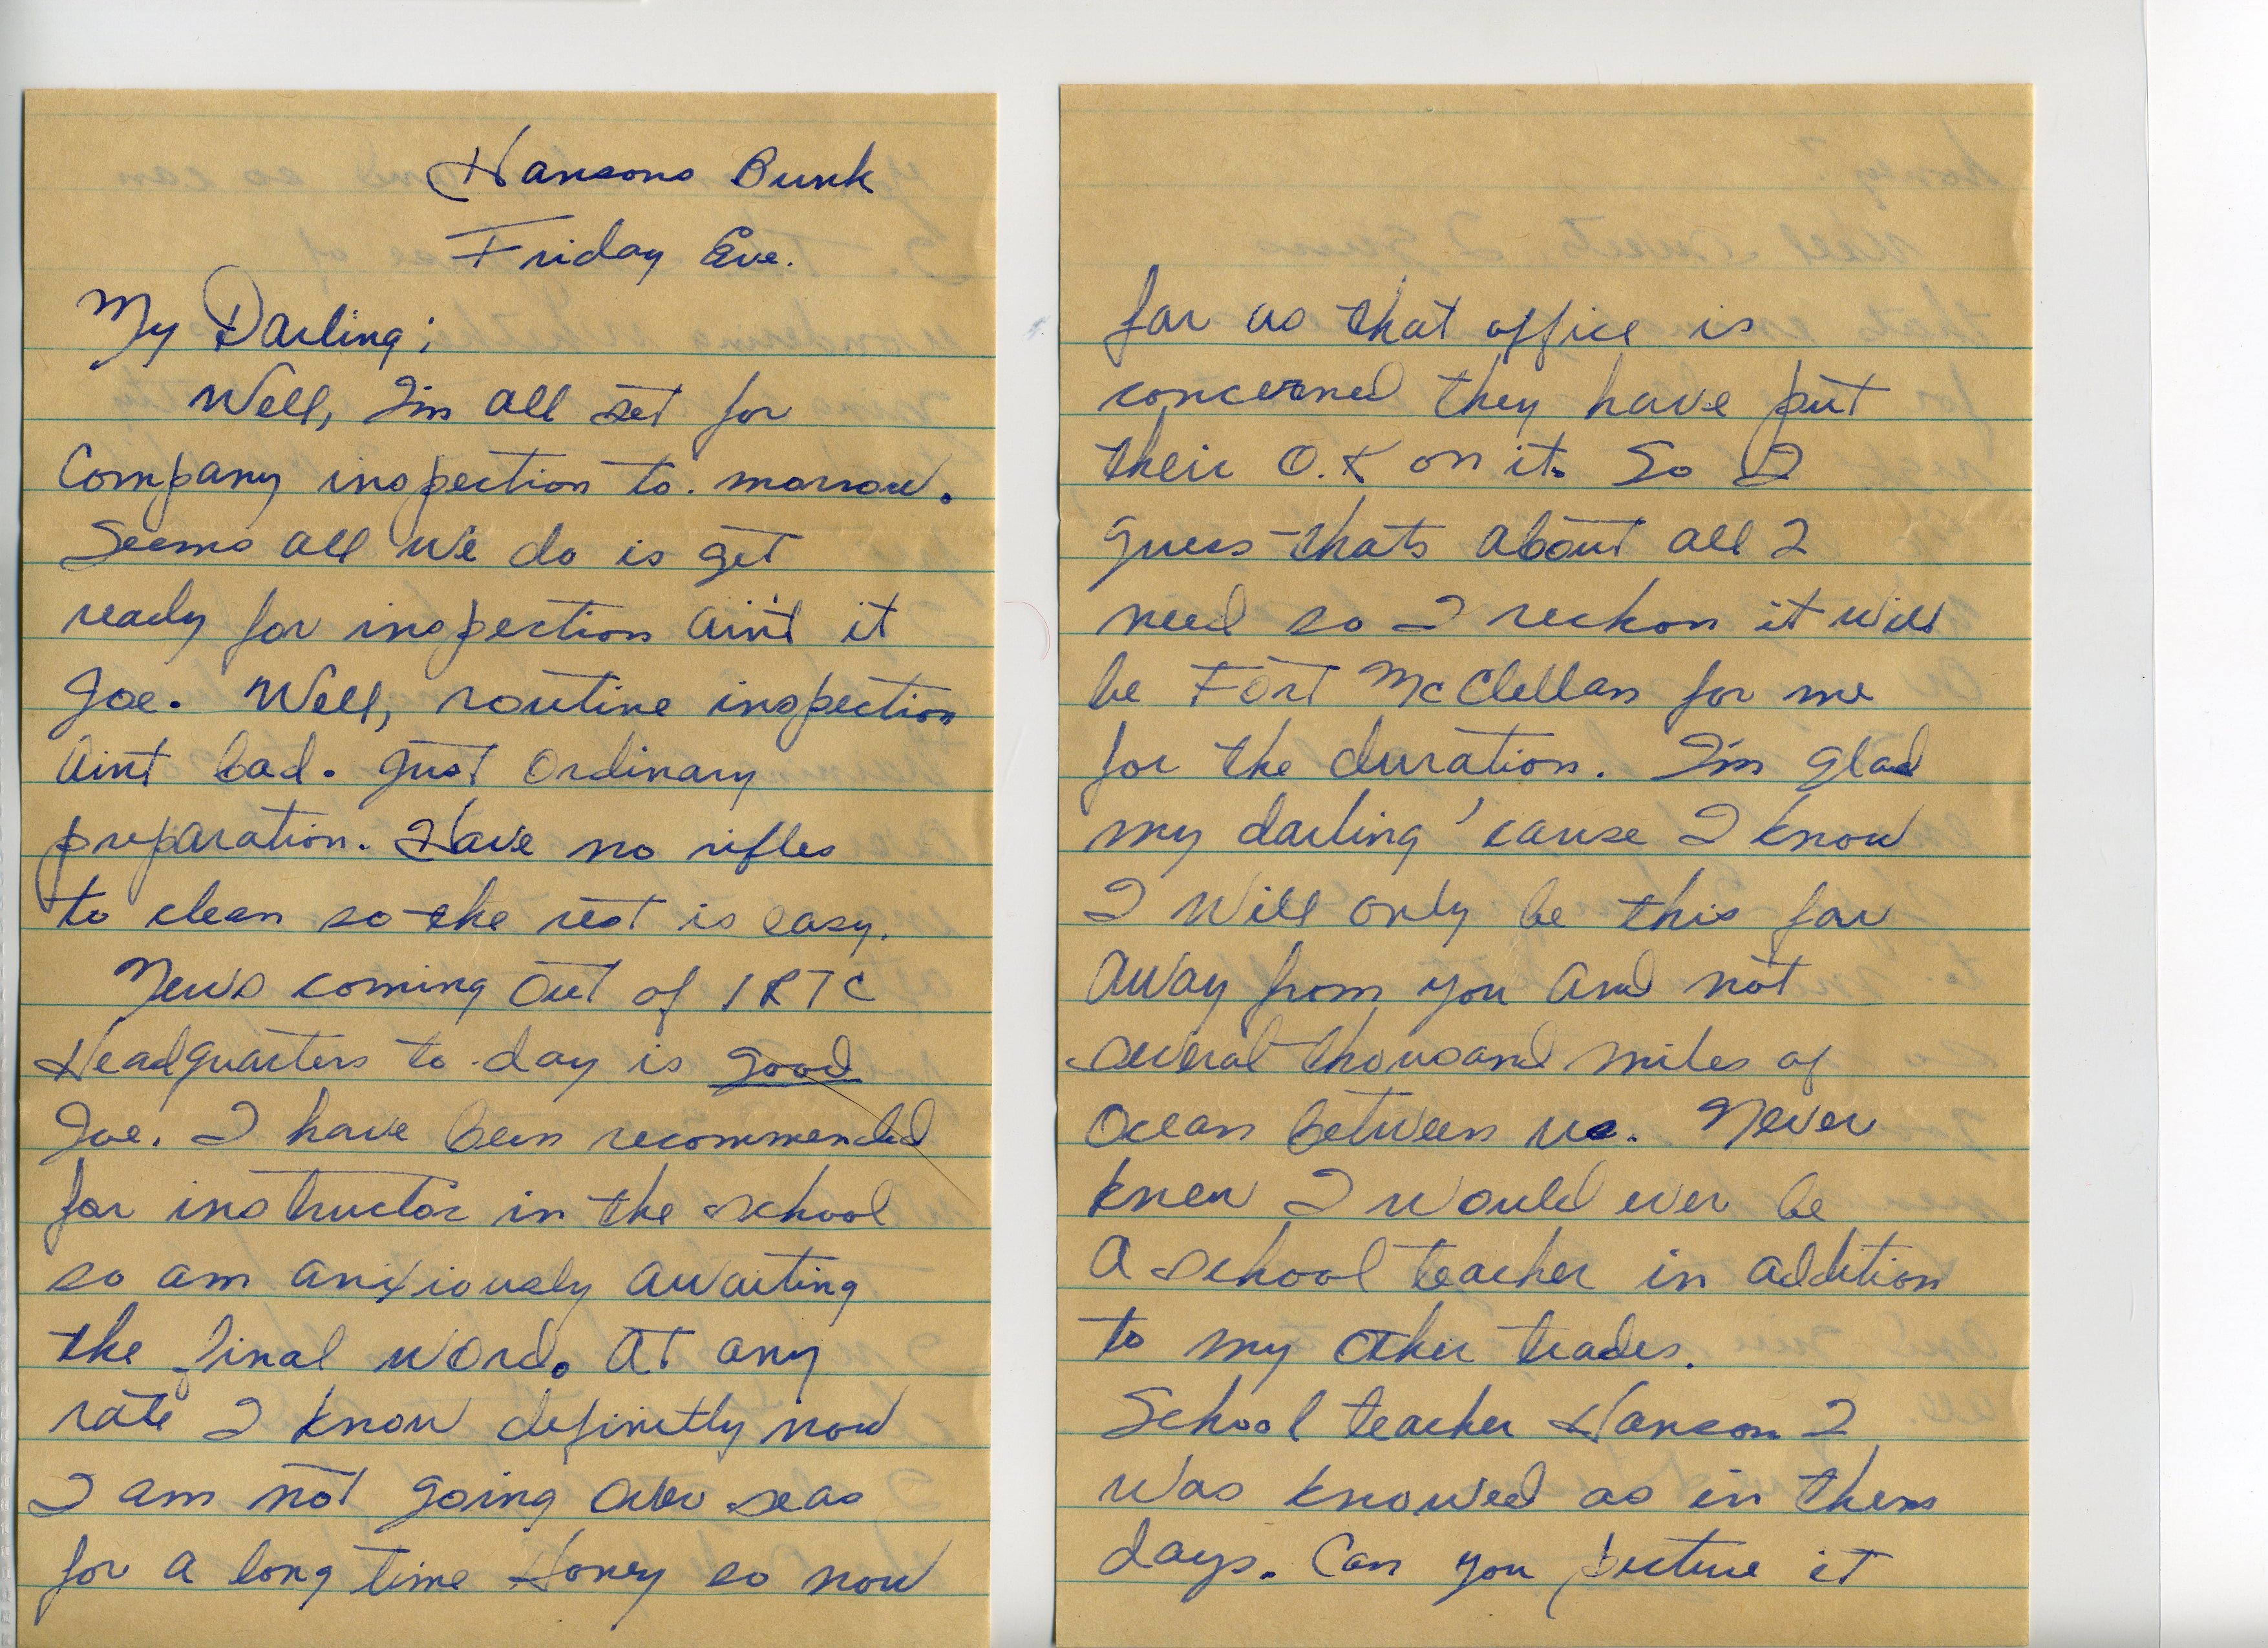 Hansons Bunk
Friday Eve.
My Darling;
Well, I'm all set for
Company inspection to. morrow.
Seems all we do is get
ready for inspection ain't it
Joe. Well, routine inspection
aint bad. Just ordinary
preparation. Have no rifles
to clean so the rest is easy.
News coming out of IRTC
Headquarters to-day is good
Joe. I have been recommended
for instructor in the school
so am anxiously awaiting
the final word. At any
rate I know definetly now
I am not going over seas
for a long time Honey so now
far as that office is
concerned they have put
their O.K on it. So I
guess thats about all I
need so I reckon it will
be Fort McClellan for me
for the duration. I'm glad
my darling 'cause I know
I will only be this far
away from you and not
several thousand miles of
ocean between us. Never
knew I would ever be
a school teacher in addition
to my other trades.
School teacher Hanson I
was knowed as in them
days. Can you picture it